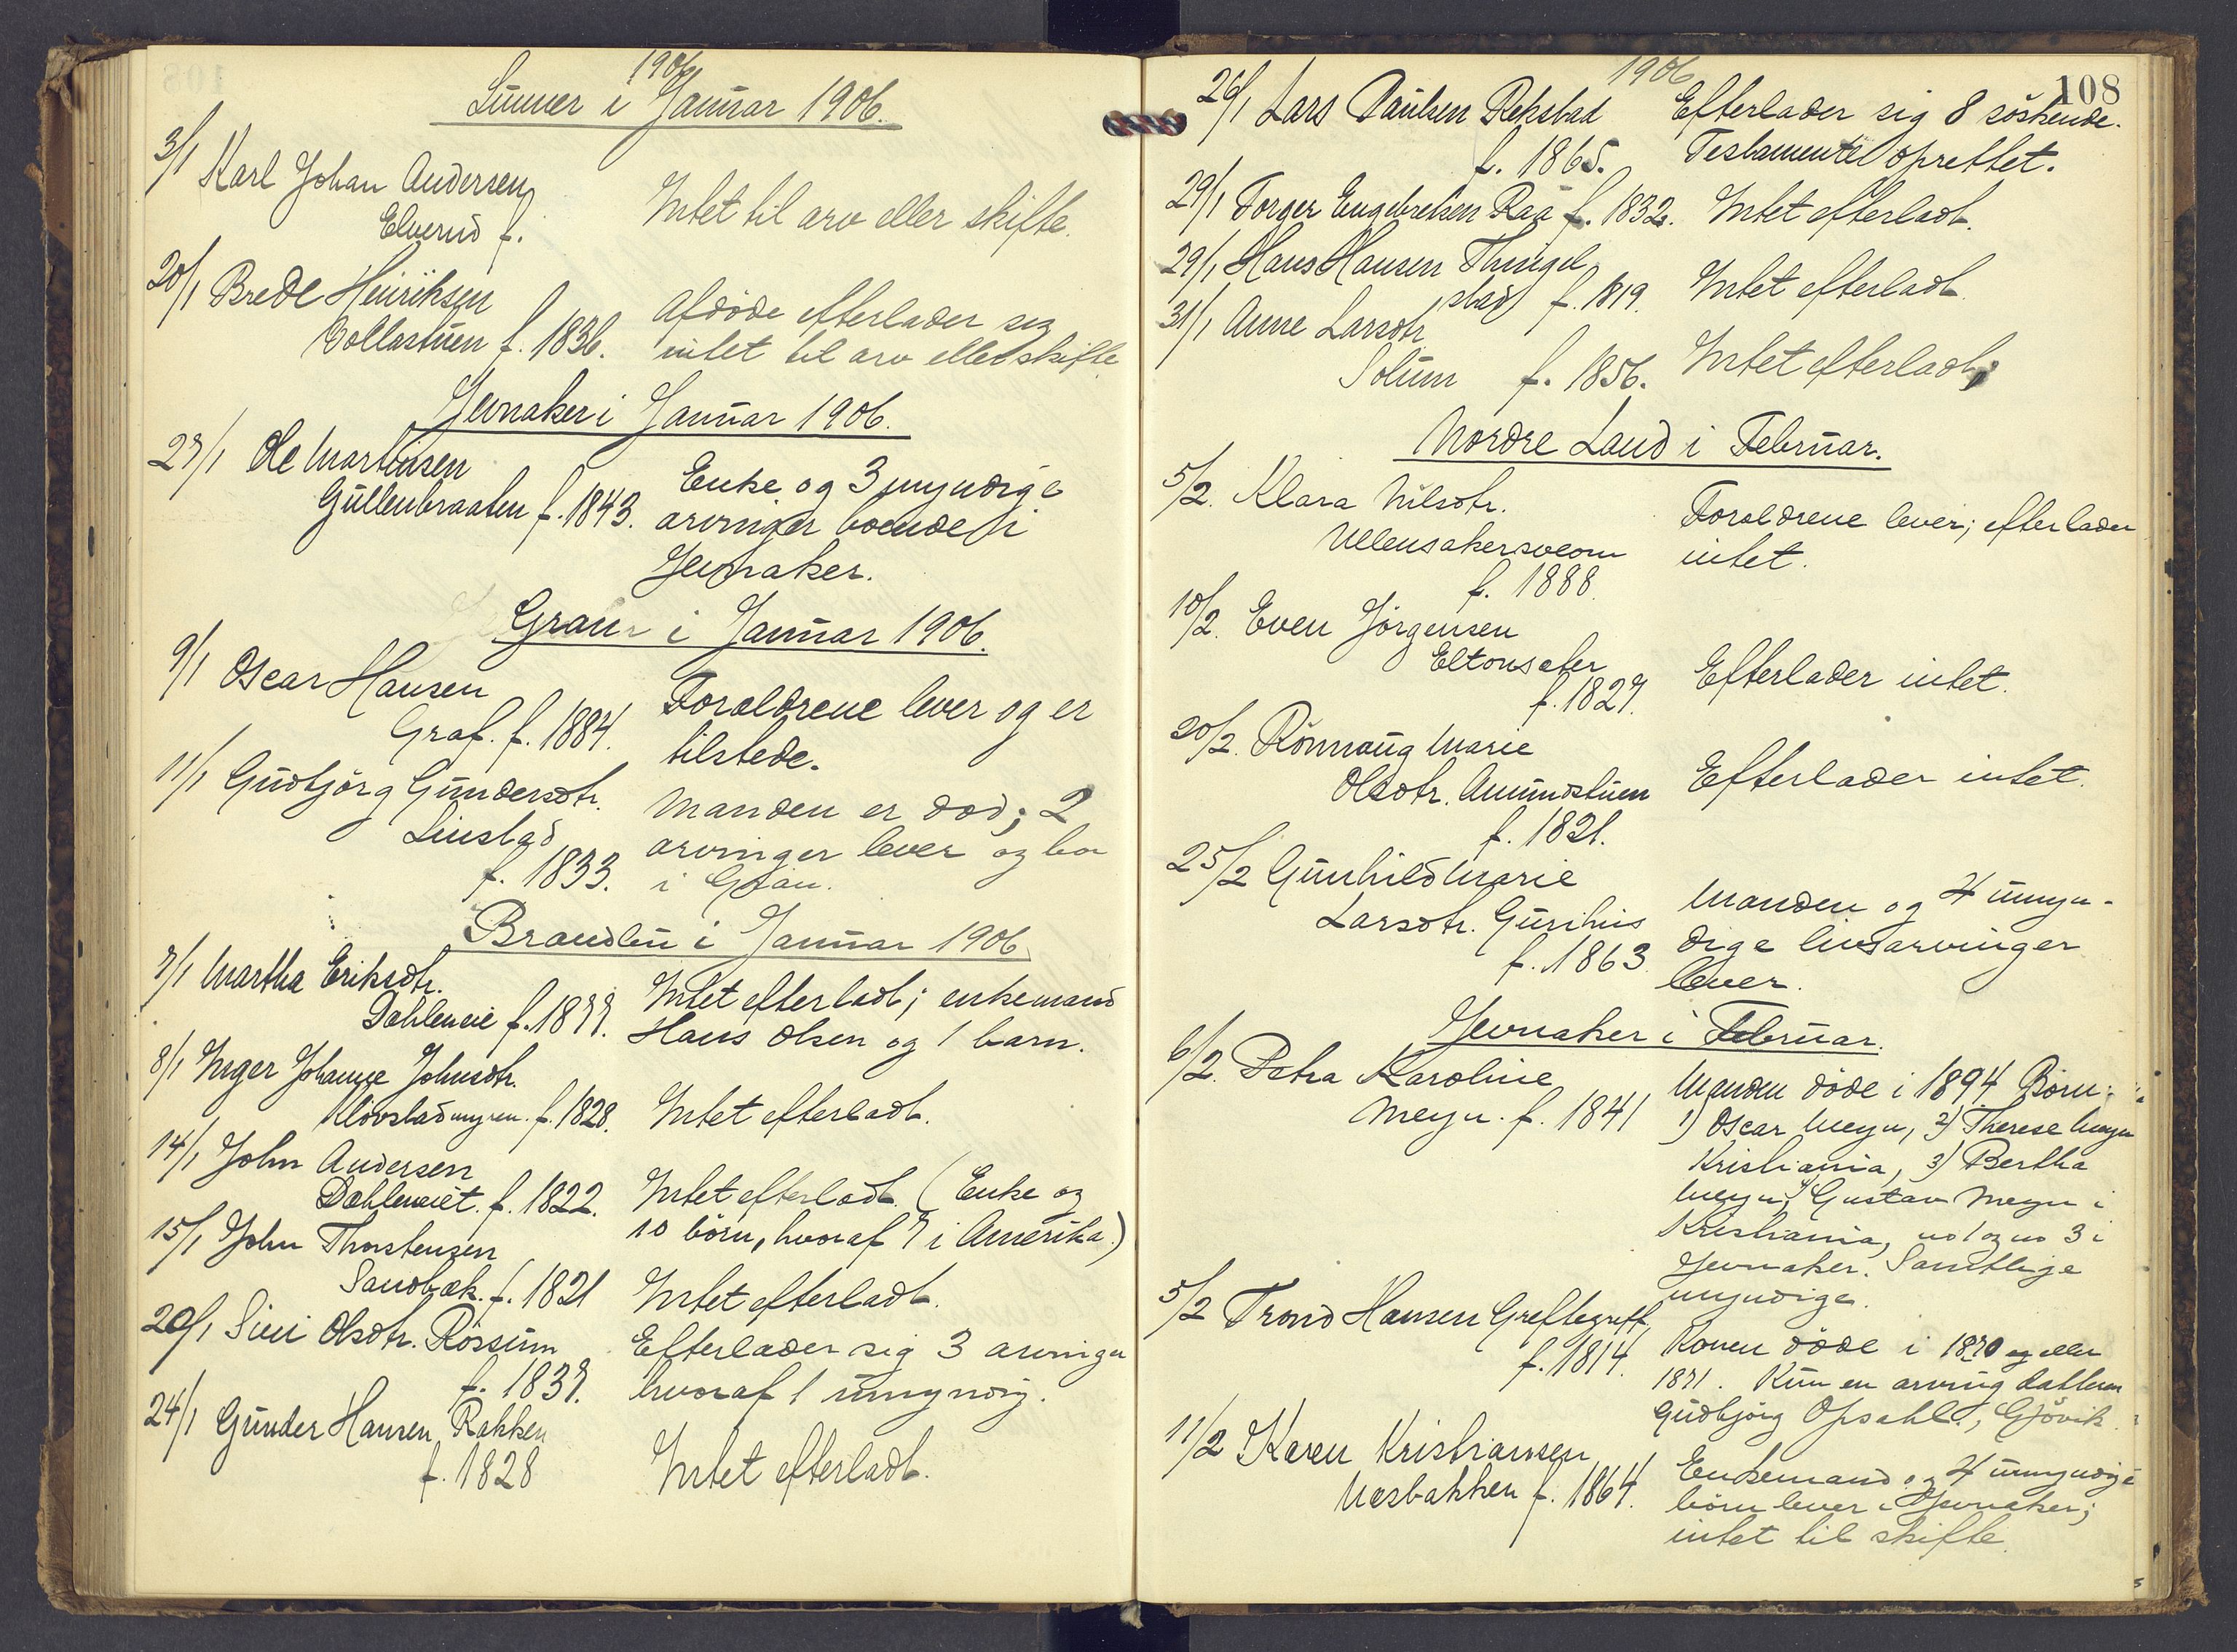 1906
Lunner i Januar 1906.
3/1 Karl Johan Andersen
Elverud f.
Intet til arv eller skifte.
20/1 Brede Henriksen
Dollastuen f. 1836.
Afdøde efterlader sig
intet til arv eller skifte
Jevnaker i Januar 1906.
27/1 Ole Martinsen
Gullenbraaten f. 1843.
Enke og 3 myndige
arvinger boende i
Jevnaker.
Gran i Januar 1906.
9/1 Oscar Hansen
Graf. f. 1884.
Forældrene lever og er
tilstede.
11/1 Gudbjørg Gundersdtr.
Linstad
f. 1833.
Manden er död; 2
arvinger lever og bor
i Gran.
Brandbu i Januar 1906
7/1 Martha Eriksdtr.
Dæhleneie f. 1877.
Intet efterladt; enkemand
Hans Olsen og 1 barn.
8/1 Inger Johanne Johnsdtr.
Klövstadmyren. f. 1828.
Intet efterladt.
14/1 John Andersen
Dæhleneiet. f. 1822.
Intet efterladt. (Enke og
10 börn, hvoraf 7 i Amerika.)
15/1 John Thorstensen
Sandbæk. f. 1821
Intet efterladt.
20/1 Siri Olsdtr. Rössum
f. 1837.
Efterlader sig 3 arvinger
hvoraf 1 umyndig.
24/1 Gunder Hansen Rækken
f. 1828
Intet efterladt.
1906
108
26/1 Lars Paulsen Rekstad
f. 1865.
Efterlader sig 8 söskende.
Testamente oprettet.
29/1 Torger Engebretsen Raa f. 1832.
Intet efterladt.
29/1 Hans Hansen Thingel
stad f. 1819.
Intet efterladt.
31/1 Anne Larsdtr
Solum f. 1856.
Intet efterladt;
Nordre Land i Februar.
5/2. Klara Nilsdtr.
Ullensakersveom
f. 1888.
Forældrene lever; efterlader
intet.
10/2. Even Jörgensen
Eltonsæter
f. 1827.
Efterlader intet.
20/2. Rönnaug Marie
Olsdtr. Amundstuen
f. 1821.
Efterlader intet.
25/2 Gunhild Marie
Larsdtr. Gurihus
f. 1863
Manden og 4 umyn-
dige livsarvinger
lever.
Jevnaker i Februar.
6/2. Petra Karoline
Meyn. f. 1841
Manden döde i 1894 Börn:
1) Oscar Meyn, 2) Therese Meyn
Kristiania, 3) Bertha
Meyn, 4) Gustav Meyn i
Kristiania, no 1 og no 3 i
Jevnaker. Samtlige
myndige.
5/2 Trond Hansen Greftegreff,
f. 1814.
Konen döde i 1870 og eller
1871. Kun en arving datteren
Gudbjörg Opsahl, Gjövik.
11/2 Karen Kristiansen
Næsbakken f. 1864.
Enkemand og 4 umyndige
börn lever i Jevnaker;
intet til skifte.